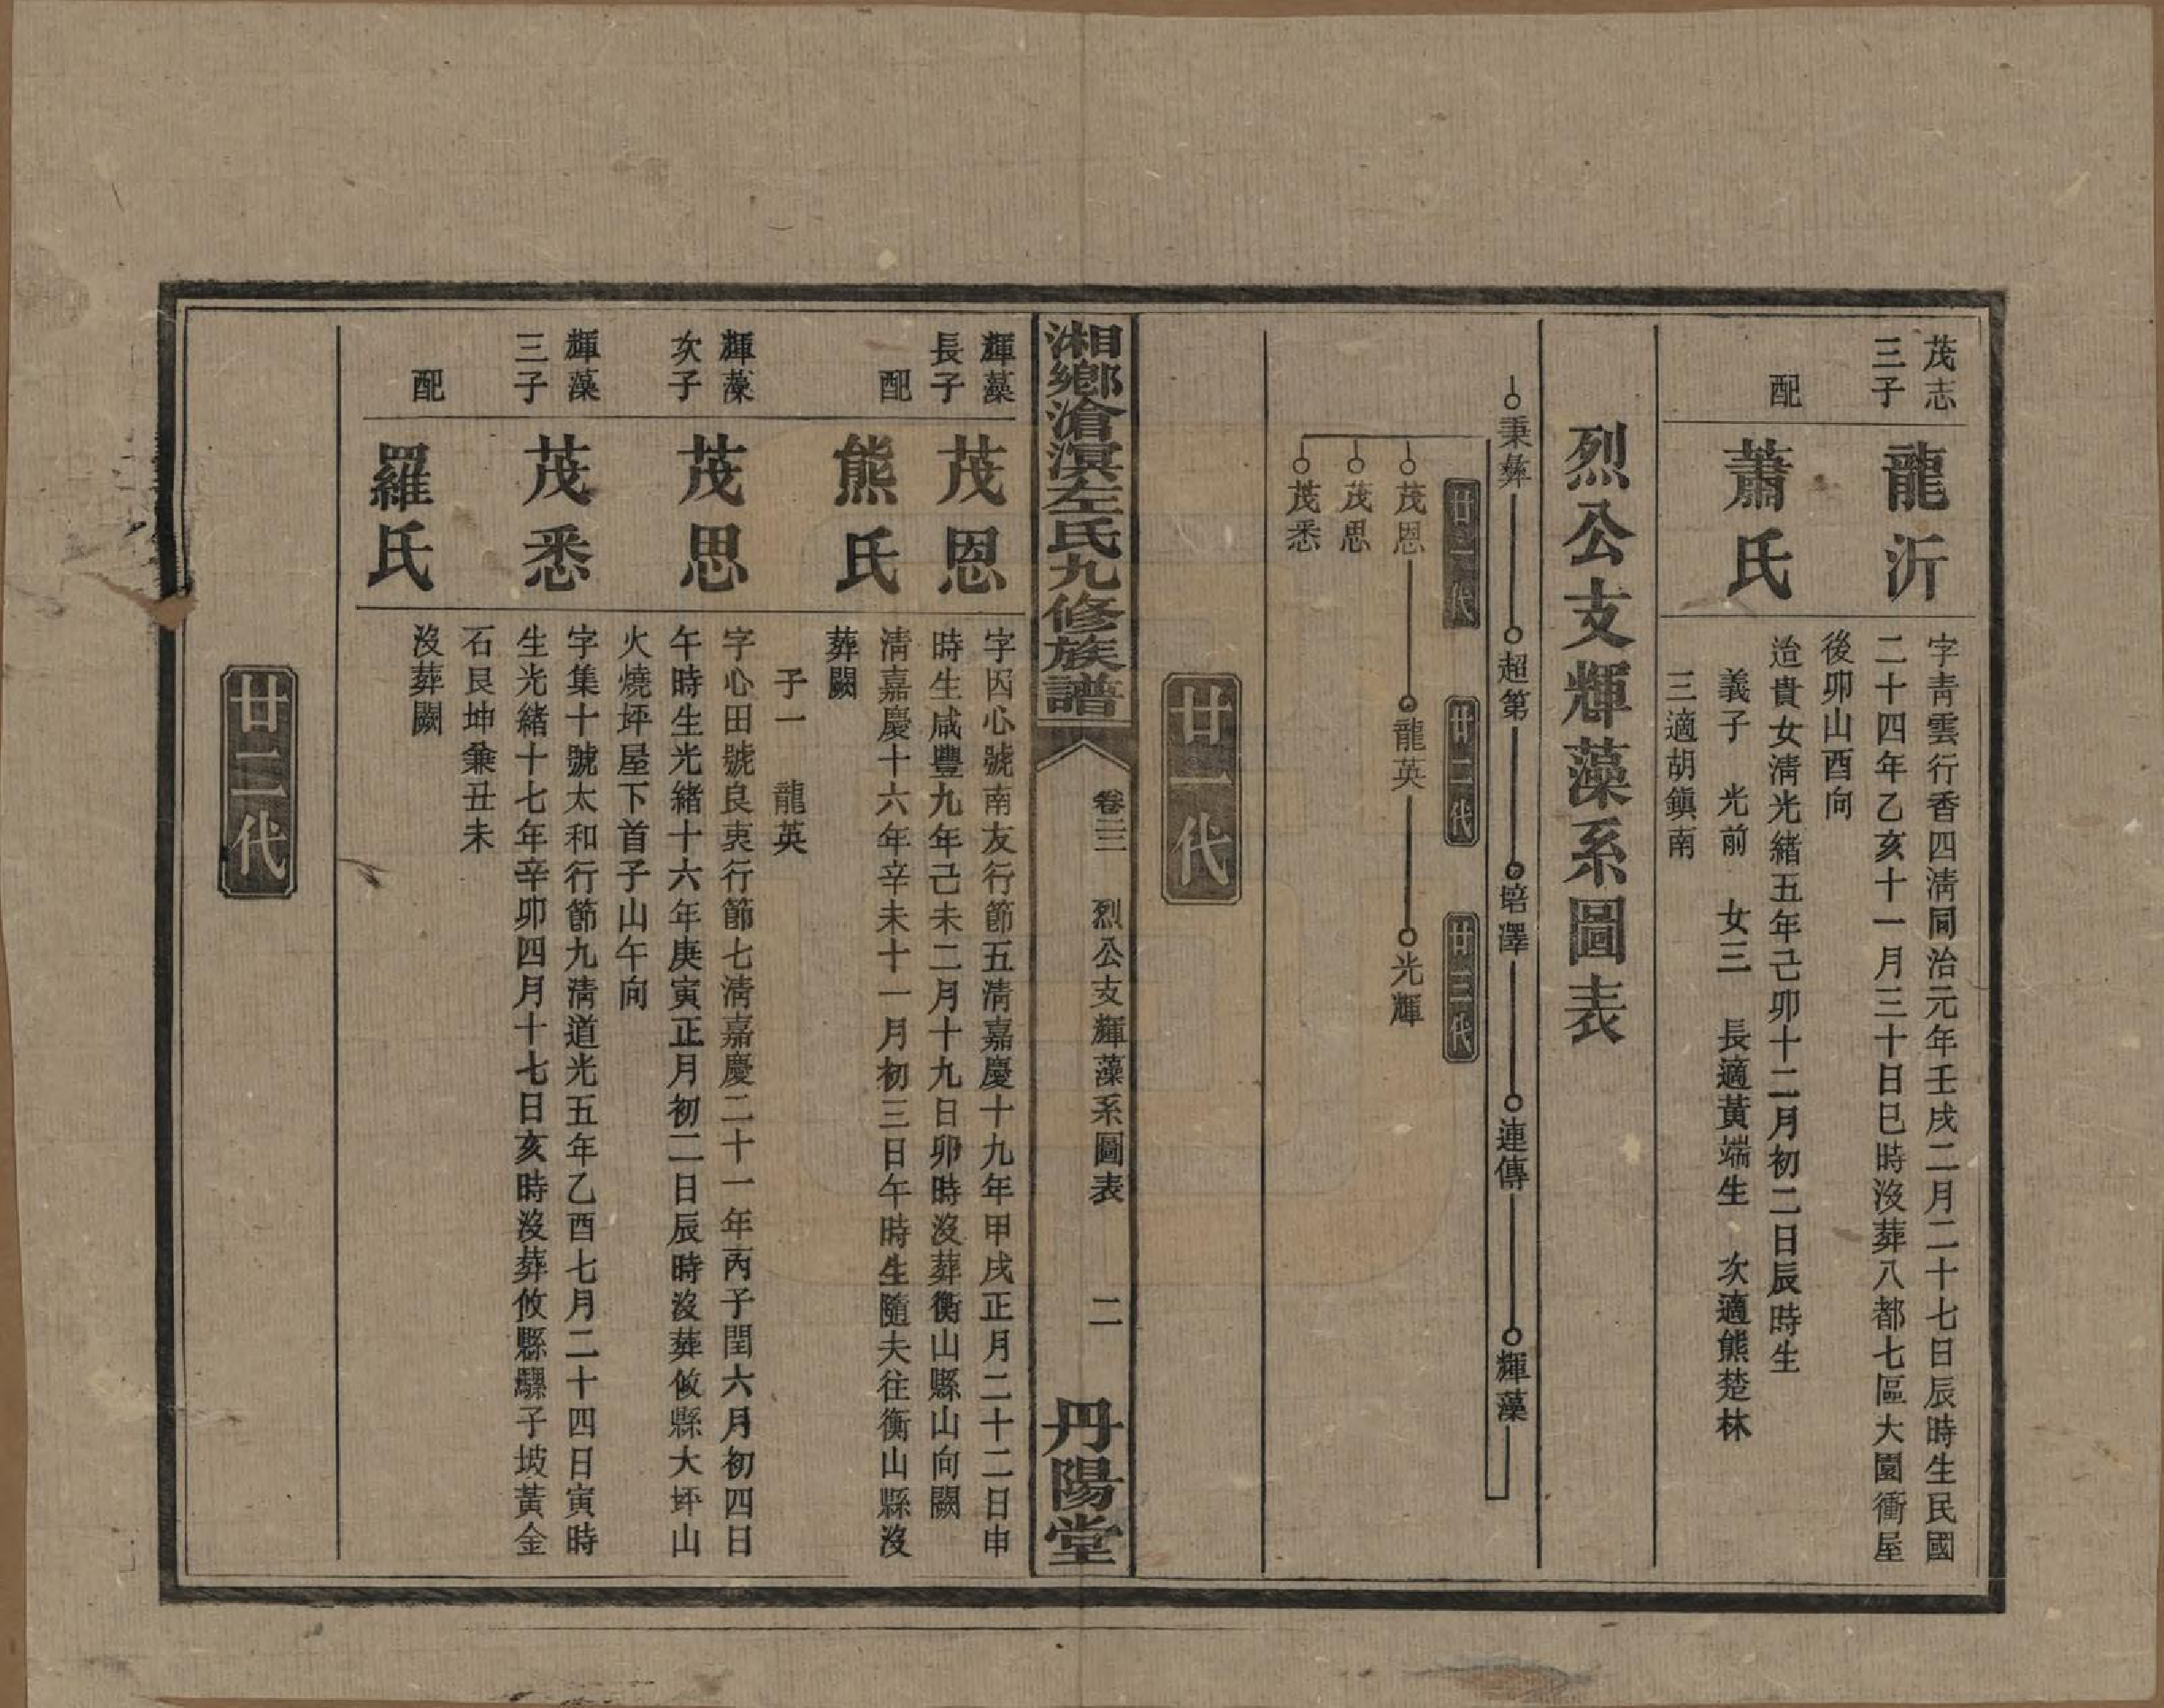 茂志
三子
龍沂
字青雲行香四淸同治元年壬戌二月二十七日辰時生民國
二十四年乙亥十一月三十日巳時沒葬八都七區大園衝屋
後卯山酉向
配
蕭氏
治貴女淸光緒五年己卯十二月初二日辰時生
義子　光前　女三　長適黃端生　次適熊楚林
三適胡鎭南
烈公支輝藻系圖表
秉彝　超第　培澤　連傳　輝藻
廿一代　廿二代　廿三代
茂恩　龍英　光輝
茂思
茂悉
廿一代
湘鄉滄溟左氏九修族譜
卷三三　烈公支輝藻系圖表　二
丹陽堂
輝藻
長子
茂恩
字因心號南友行節五淸嘉慶十九年甲戌正月二十二日申
時生咸豐九年己未二月十九日卯時沒葬衡山縣山向闕
配
熊氏
淸嘉慶十六年辛未十一月初三日午時生隨夫往衡山縣沒
葬闕
子一　龍英
輝藻
次子
茂思
字心田號良衷行節七淸嘉慶二十一年丙子閏六月初四日
午時生光緒十六年庚寅正月初二日辰時沒葬攸縣大坪山
火燒坪屋下首子山午向
輝藻
三子
茂悉
字集十號太和行節九淸道光五年乙酉七月二十四日寅時
生光緒十七年辛卯四月十七日亥時沒葬攸縣騾子坡黃金
石艮坤兼丑未
配
羅氏
沒葬闕
廿二代